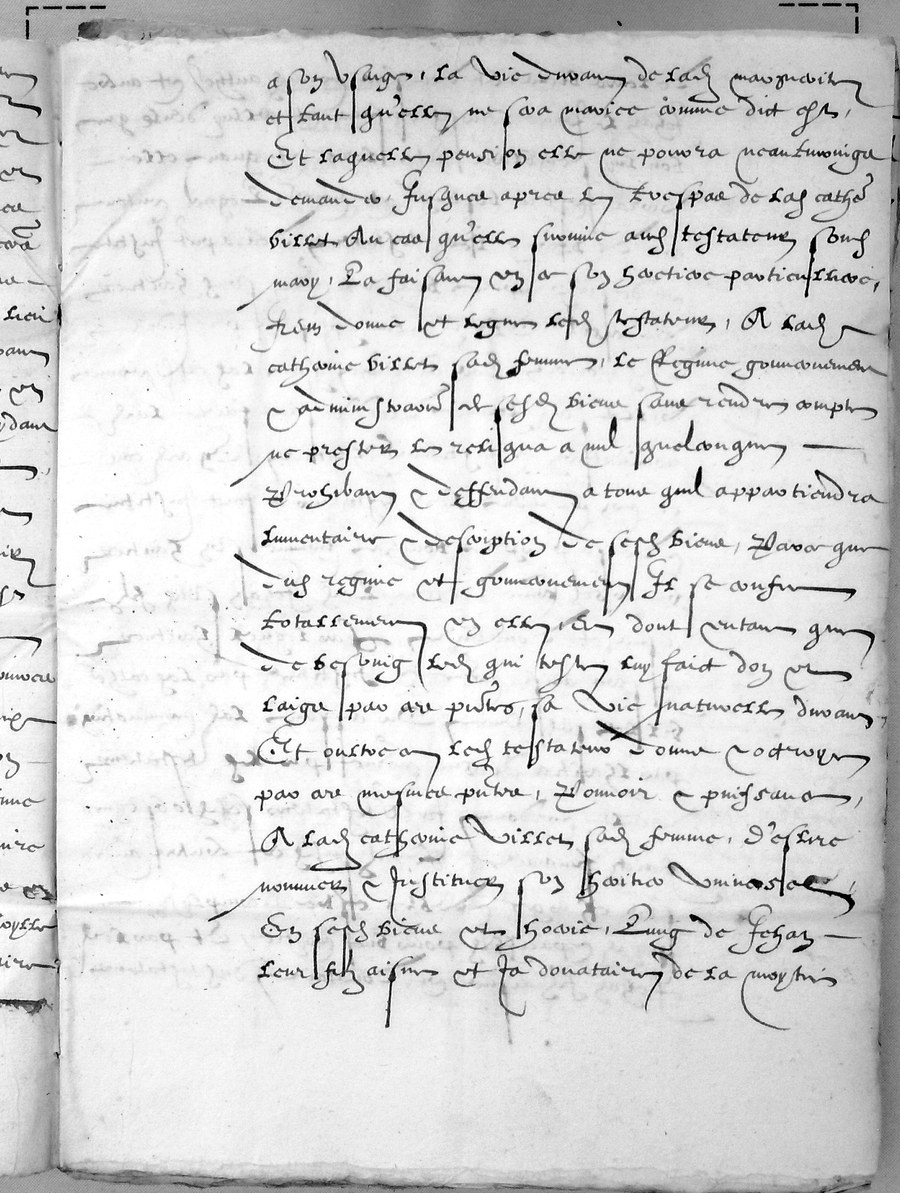 a son usaige, la vie durant de lad marguerite
et tant qu'elle ne sera mariee comme dict est,
Et laquelle pension elle ne pourra neantmoings
demander Jusques apres le trespas de lad cathe
villet Au cas qu'elle survive aud testateur sond
mary, La faisant en ce son heretiere particulliere,
Item donne et legue led testateur, A lad
catherine villet sad femme, le Regime gouvernement
& administraon de sesd biens sans rendre compte
ne prester le reliqua a nul quelconque
Prohibant & deffendant a tous quil appartiendra
Linventaire & description de sesd biens, Parce que
dud regime et gouvernement Il se confie
totallement en elle, Et dont entant que
de besoing led qui teste luy faict don et
laigs par ces pntes, sa vie naturelle durant
Et oultre ce led testateur donne & octroye
par ces mesmes pntes, Pouvoir & puissance,
A lad catherine villet sad femme, d'eslire
nommer & Instituer son heritier universel
En sesd biens et hoirie, L'ung de Jehan
leur filz aisne et Ja donataire de la moytie